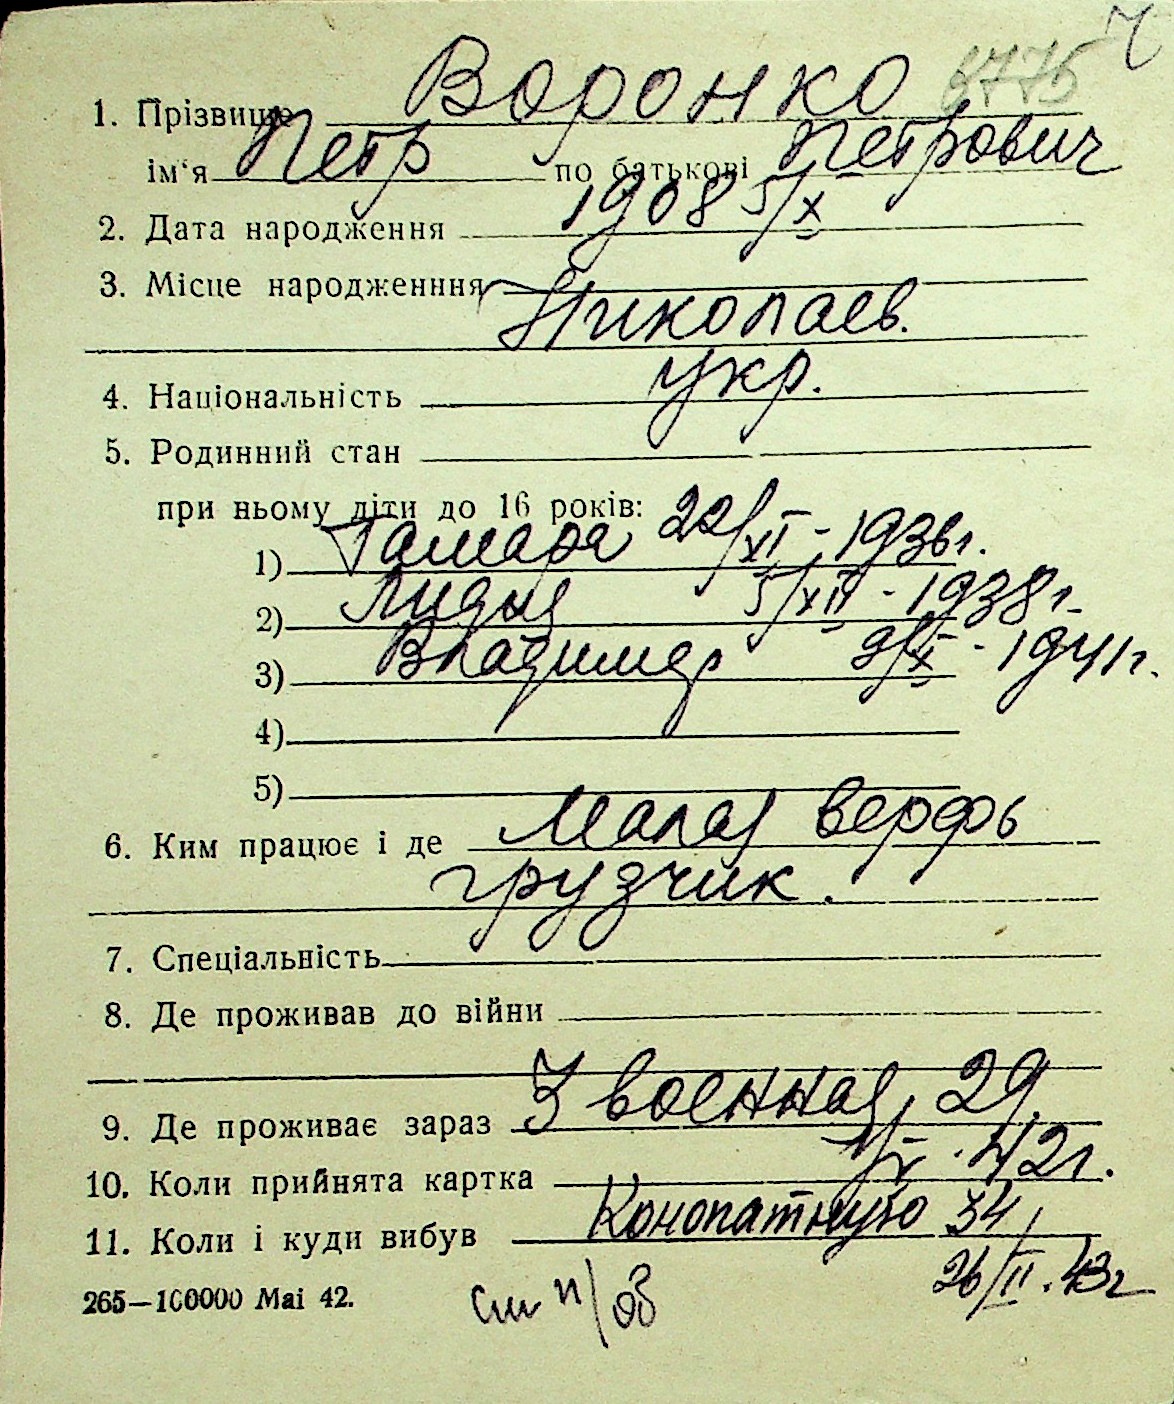 Ч
1. Прізвище Воронко 3775
ім‘я Петр по батькові Петрович
2. Дата народження 1908 5/X
3. Місце народженння Николаев.
4. Національність укр.
5. Родинний стан
при ньому діти до 16 років:
1) Тамара 22/XI - 1936 г.
2) Лидия 5/XII - 1938 г.
3) Владимир 9/X - 1941 г.
4)
5)
6. Ким працює і де Малая верфь
грузчик.
7. Спеціальність
8. Де проживав до війни
9. Де проживає зараз 3 военная, 29.
10. Коли прийнята картка 42 г.
11. Коли і куди вибув Конопатную 34
26/II. 43 г
265—100000 Mai 42.
см н/об